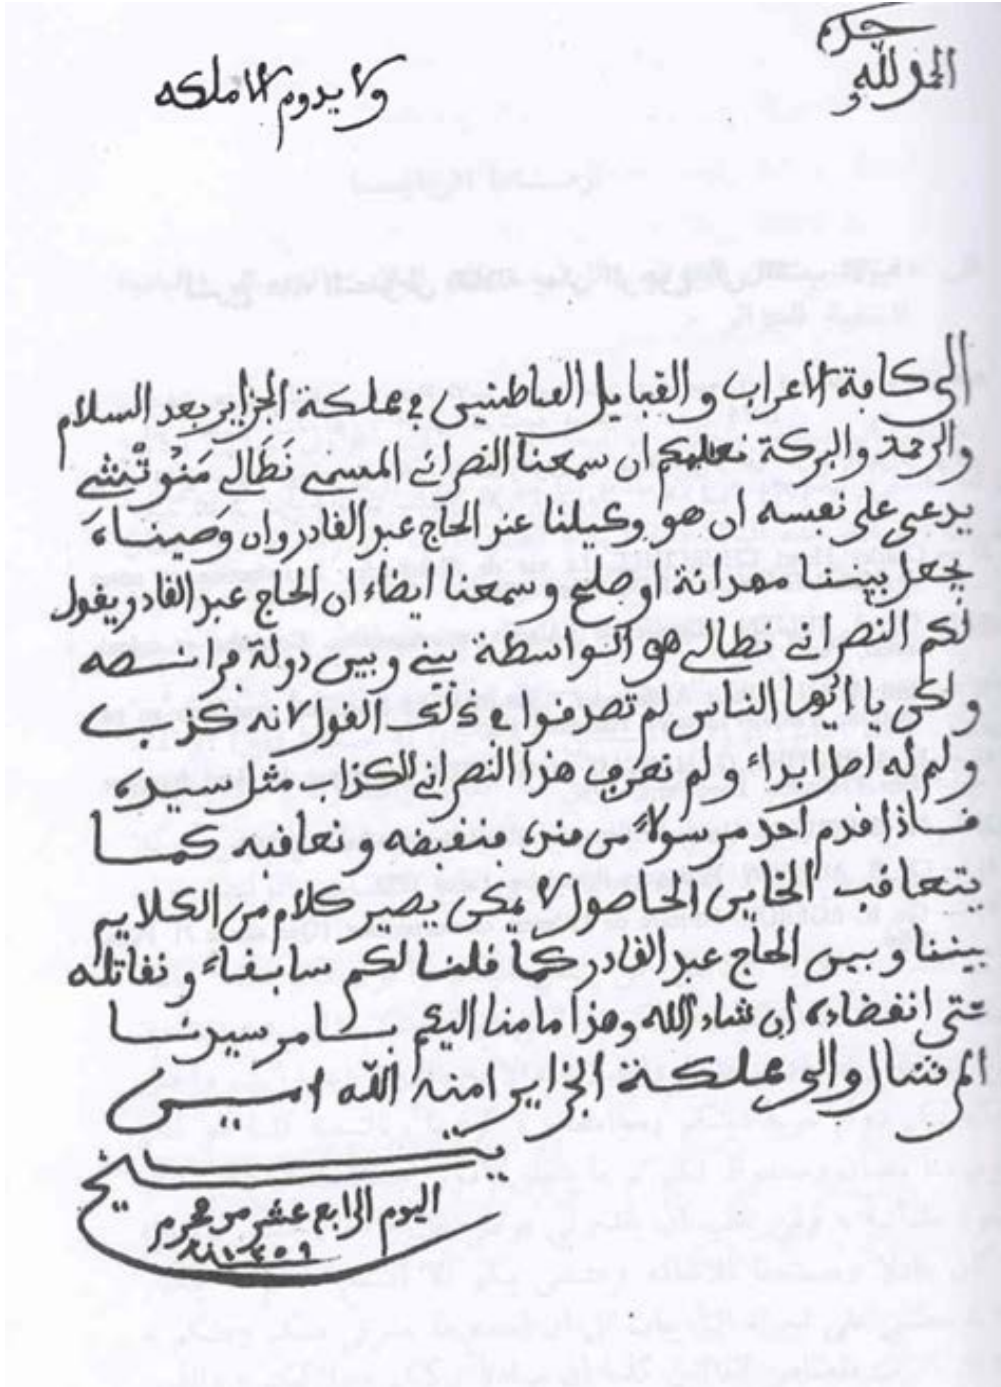 الحمد لله وحده
ولا يدوم الا ملكه
الى كافة الاعراب والقبايل القاطنين في مملكة الجزاير بعد السلام
والرحمة والبركة نعلمكم ان سمعنا النصراني المسمى نَطَالي مَنُوتْشي
يدعي على نفسه ان هو وكيلنا عند الحاج عبد القادر وان وَصيناه
يجعل بيننا مهدانة او صلح وسمعنا ايضاء ان الحاج عبد القادر يقول
لكم النصراني نطالي هو الواسطة بيني وبين دولة فرانسه
ولكن يا ائيها الناس لم تصدقوا في ذلك القول لانه كذب
ولم له اصل ابداء ولم نعرف هذا النصراني الكذاب مثل سيده
فاذا قدم احد مرسولاً من عنده فنقبضه ونعاقبه كما
يتعاقب الخاين الحاصول لا يمكن يصير كلام من الكلايم
بيننا وبين الحاج عبد القادر كما قلنا لكم سابقاء ونقاتله
حتى انقضاه ان شاء الله وهذا ما منا اليكم بامر سيدنا
المرشال والي مملكة الجزاير امنه الله امين
بتاريخ
اليوم الرابع عشر من محرم